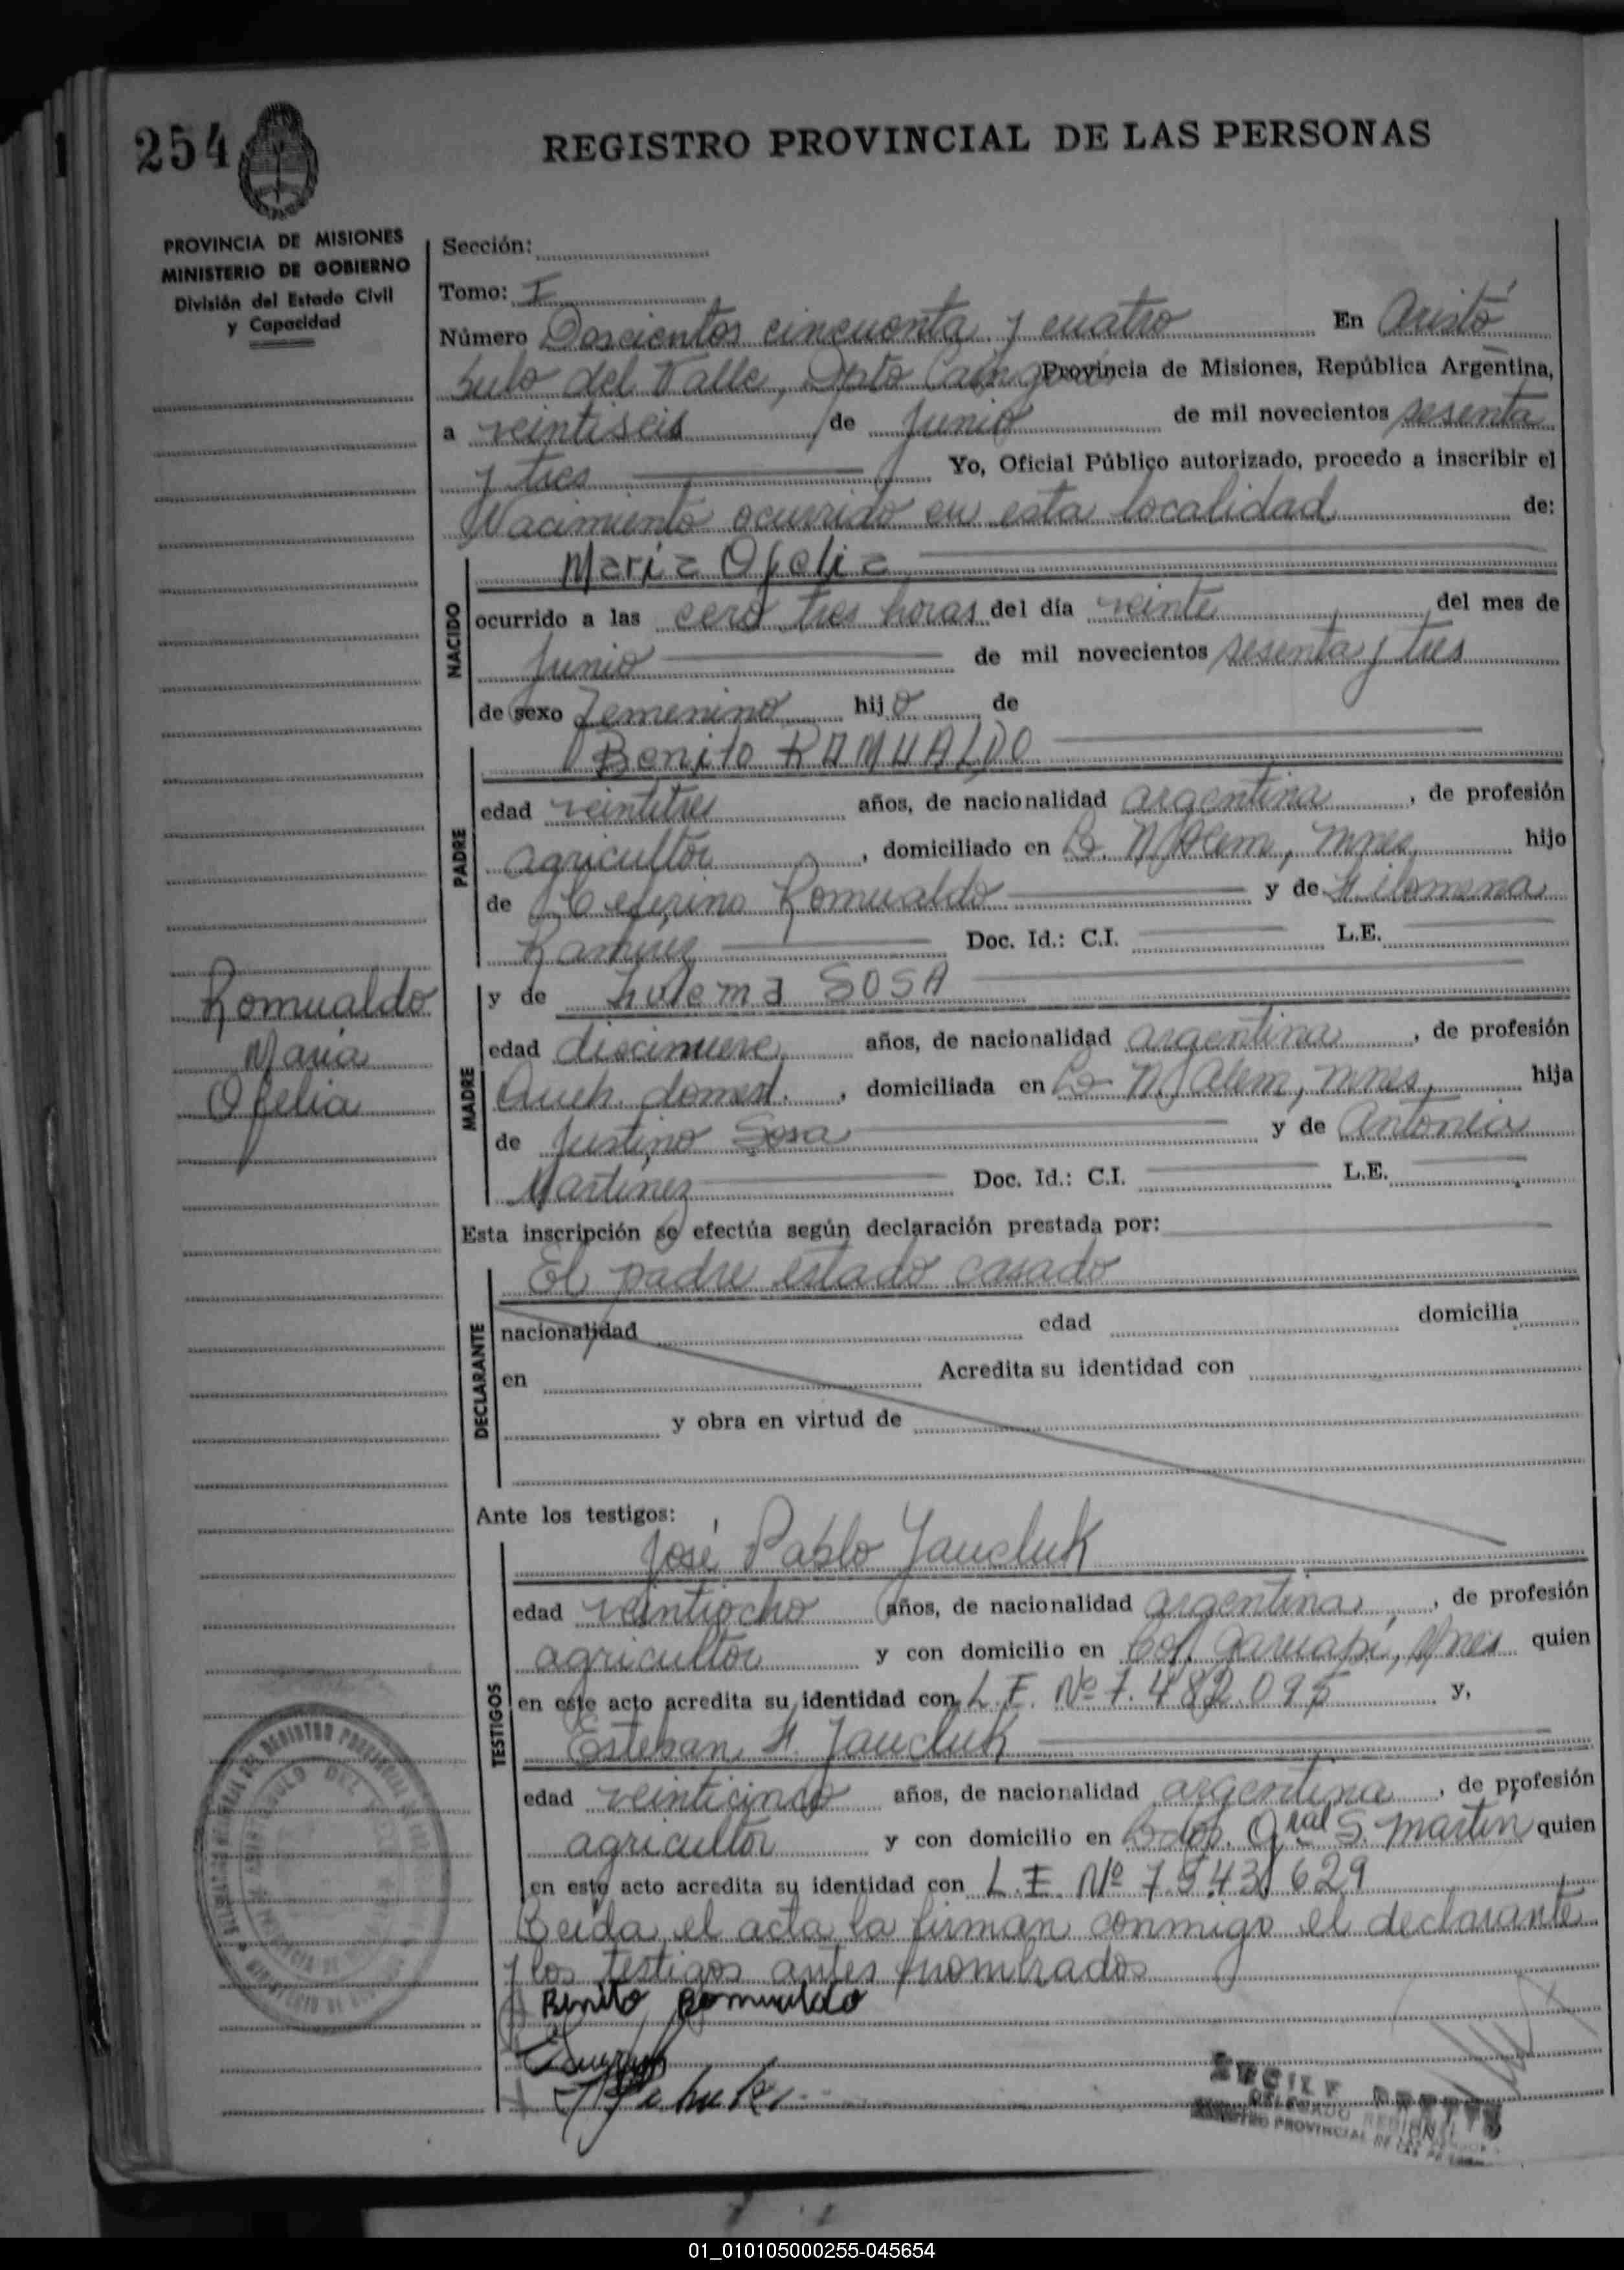 254
REGISTRO PROVINCIAL DE LAS PERSONAS
PROVINCIA DE MISIONES
MINISTERIO DE GOBIERNO
División del Estado Civil
y Capacidad
Sección:
Tomo: I
Número Doscientos cincuenta y cuatro En Aristó
bulo del Valle, Dpto Cainguás Provincia de Misiones, República Argentina,
a veintiseis de Junio de mil novecientos sesenta
y tres Yo, Oficial Público autorizado, procedo a inscribir el
Nacimiento ocurrido en esta localidad de:
NACIDO
María Ofelia
ocurrido a las cero tres horas del día veinte del mes de
Junio de mil novecientos sesenta y tres
de sexo Femenino hijo de
PADRE
Benito ROMUALDO
edad veintitres años, de nacionalidad argentina, de profesión
agricultor, domiciliado en L. N. Alem, Mnes, hijo
de Ceferino Romualdo y de Filomena
Ramirez Doc. Id.: C.I. L.E.
MADRE
y de Zulema SOSA
edad diecinueve años, de nacionalidad argentina, de profesión
Queh. domest., domiciliada en L N Alem, Mnes, hija
de Justino Sosa y de Antonia
Martinez Doc. Id.: C.I. L.E.
Romualdo
Maria
Ofelia
Esta inscripción se efectúa según declaración prestada por:
DECLARANTE
El padre estado casado
nacionalidad edad domicilia
en Acredita su identidad con
y obra en virtud de
Ante los testigos:
TESTIGOS
José Pablo Jaucluk
edad veintiocho años, de nacionalidad argentina, de profesión
agricultor y con domicilio en Col. Garuapí, Mnes quien
en este acto acredita su identidad con L.E. Nº 7.482.095 y,
Esteban H. Jaucluk
edad veinticinco años, de nacionalidad argentina, de profesión
agricultor y con domicilio en Ldor. Gral S. Martin quien
en este acto acredita su identidad con L.E Nº 7.543.629
Leida el acta la firman conmigo el declarante
y los testigos antes nombrados
Benito Romualdo
DELEGADO REGIONAL
REGISTRO PROVINCIAL DE LAS PERSONAS
01_010105000255-045654